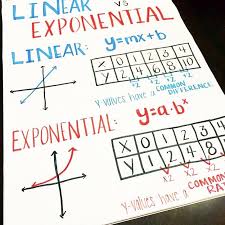 LINEAR vs
EXPONENTIAL
LINEAR: y=mx+b
X 0 1 2 3 4
Y 2 4 6 8 10
+2 +2 +2 +2
y-values have a COMMON
DIFFERENCE
EXPONENTIAL: y=a·bˣ
X 0 1 2 3 4
Y 1 2 4 8
x2 x2 x2
y-values have a COMMON
RA